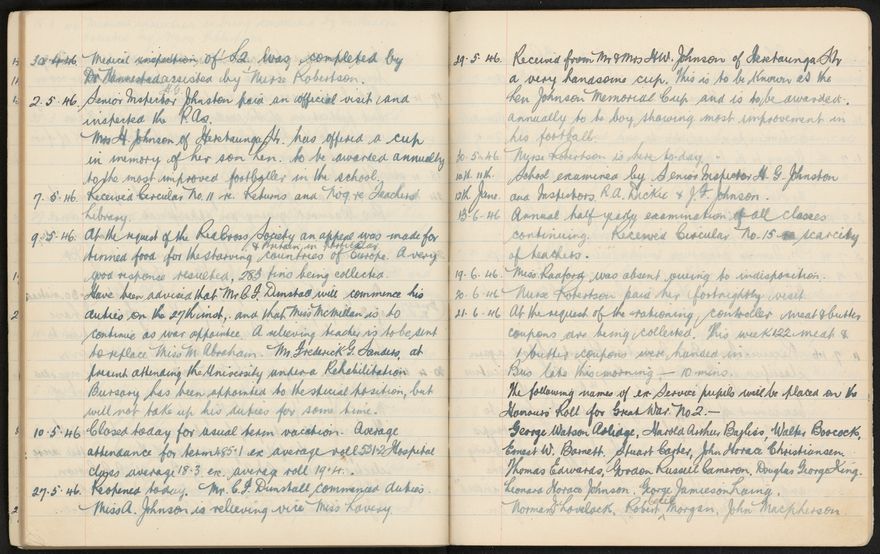 30.4.46. Medical inspection of S2 was completed by
Dr assisted by Nurse Robertson.
2.5.46. Senior Inspector H.G. Johnston paid an official visit and
inspected the P.As.
Mrs H. Johnson of Heretaunga St. has offered a cup
in memory of her son Ken. to be awarded annually
to the most improved footballer in the school.
7.5.46. Received Circular No. 11 re. Returns and No 9 re. Teachers
Library.
9.5.46. At the request of the Red Cross Society an appeal was made for
& Britain in particular
tinned food for the starving countries of Europe. A very
good response resulted, 283 tins being collected.
Have been advised that Mr C.J. Dunstall will commence his
duties on the 27th inst., and that Miss McMillan is to
continue as war appointee. A relieving teacher is to be sent
to replace Miss M. Abraham. Mr. Frederick G. Sanders, at
present attending the University under a Rehabilitation
Bursary has been appointed to the special position, but
will not take up his duties for some time.
10.5.46 Closed today for usual term vacation. Average
attendance for term 485.1 ex average roll 531.2 Hospital
classes average 18.3 ex. average roll 19.4.
27.5.46. Reopened today. Mr. C.J. Dunstall commenced duties.
Miss A. Johnson is relieving vice Miss Lavery
29.5.46. Received from Mr & Mrs H.W. Johnson of Heretaunga Str
a very handsome cup. This is to be known as the
Ken Johnson Memorial Cup and is to be awarded.
annually to to boy showing most improvement in
his football.
30.5.46 Nurse Robertson is here to-day.
10th. 11th. School examined by Senior Inspector H. G. Johnston
12th June. and Inspectors R.A. Dickie & J.F. Johnson.
13.6.46 Annual half yearly examination of all classes
continuing. Received Circular No. 15 scarcity
of teachers.
19.6.46. Miss Raaford was absent owing to indisposition.
20.6.46 Nurse Robertson paid her fortnightly visit.
21.6.46 At the request of the rationing controller meat & butter
coupons are being collected. This week 122 meat &
1 butter coupons were handed in
Bus late this morning — 10 mins.
The following names of ex Service pupils will be placed on the
Honours Roll for Great War No 2.—
George Watson Harold Arthur Bayliss, Walter Boocock,
Ernest W. Barnett. Stuart Carter, John Horace Christiansen
Thomas Edwards, Gordon Russell Cameron, Douglas George King.
Leonard Horace Johnson, George Jamieson Laing.
Norman J Lovelock, Robert Morgan, John Macpherson